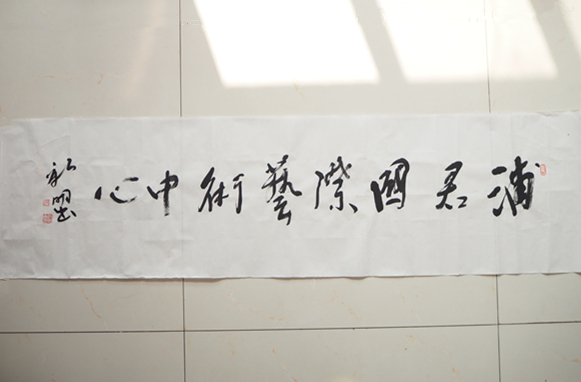 浦君國際藝術中心